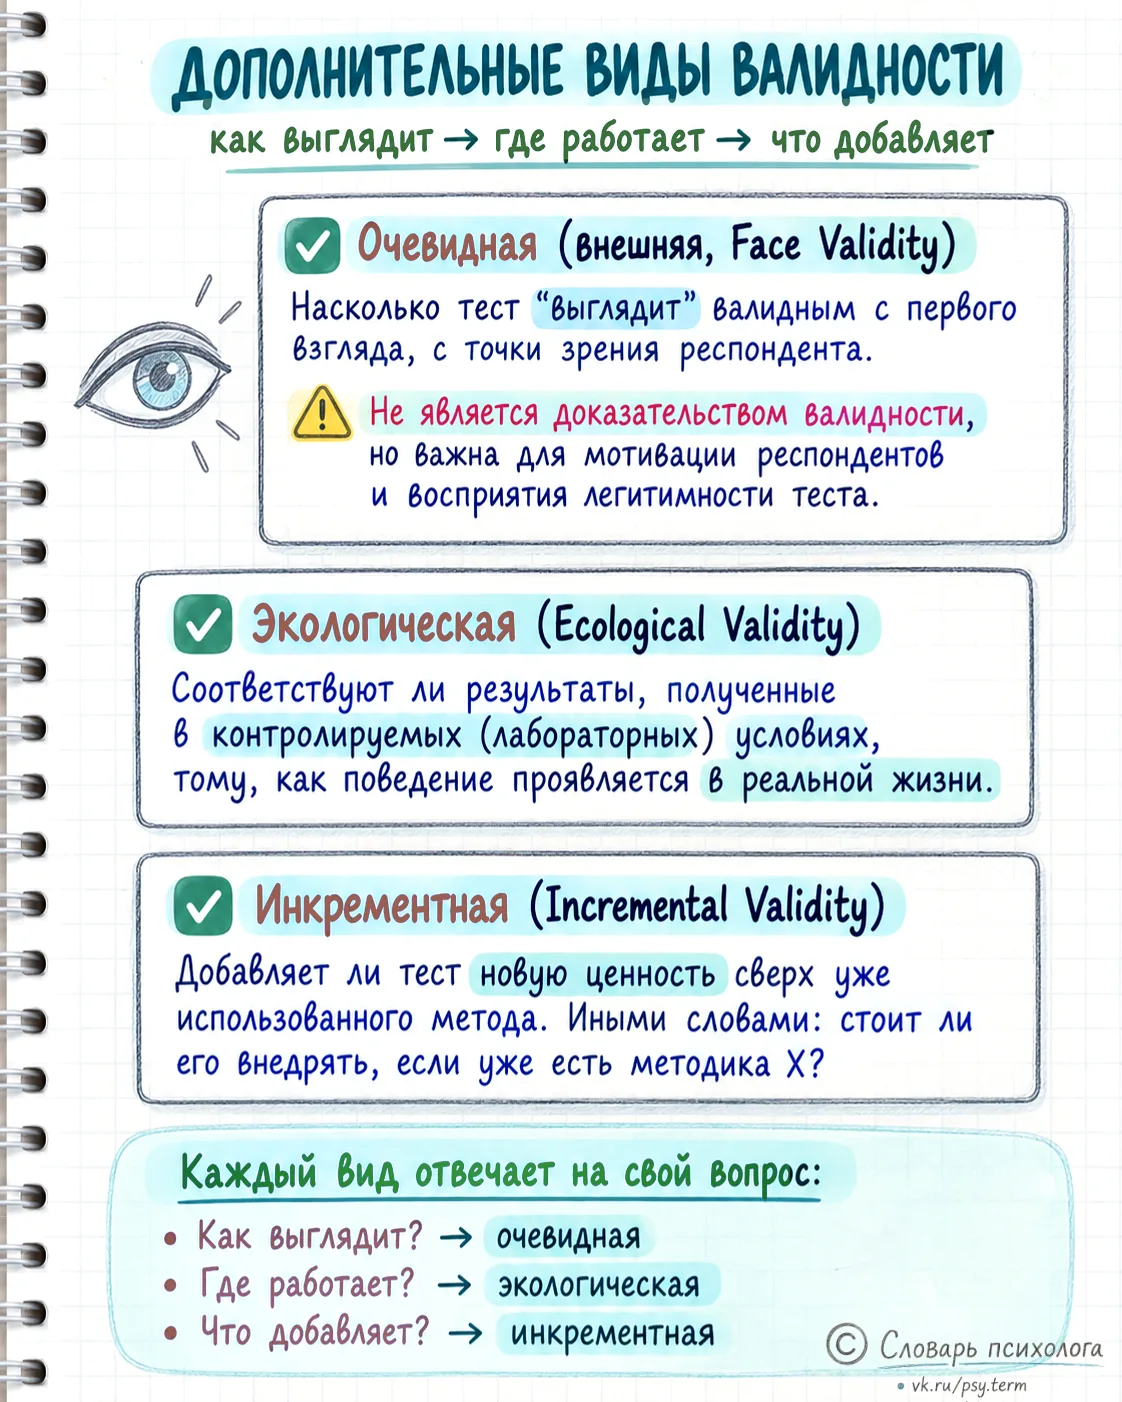 ДОПОЛНИТЕЛЬНЫЕ ВИДЫ ВАЛИДНОСТИ
как выглядит → где работает → что добавляет
Очевидная (внешняя, Face Validity)
Насколько тест “выглядит” валидным с первого
взгляда, с точки зрения респондента.
Не является доказательством валидности,
но важна для мотивации респондентов
и восприятия легитимности теста.
Экологическая (Ecological Validity)
Соответствуют ли результаты, полученные
в контролируемых (лабораторных) условиях,
тому, как поведение проявляется в реальной жизни.
Инкрементная (Incremental Validity)
Добавляет ли тест новую ценность сверх уже
использованного метода. Иными словами: стоит ли
его внедрять, если уже есть методика X?
Каждый вид отвечает на свой вопрос:
• Как выглядит? → очевидная
• Где работает? → экологическая
• Что добавляет? → инкрементная
© Словарь психолога
• vk.ru/psy.term